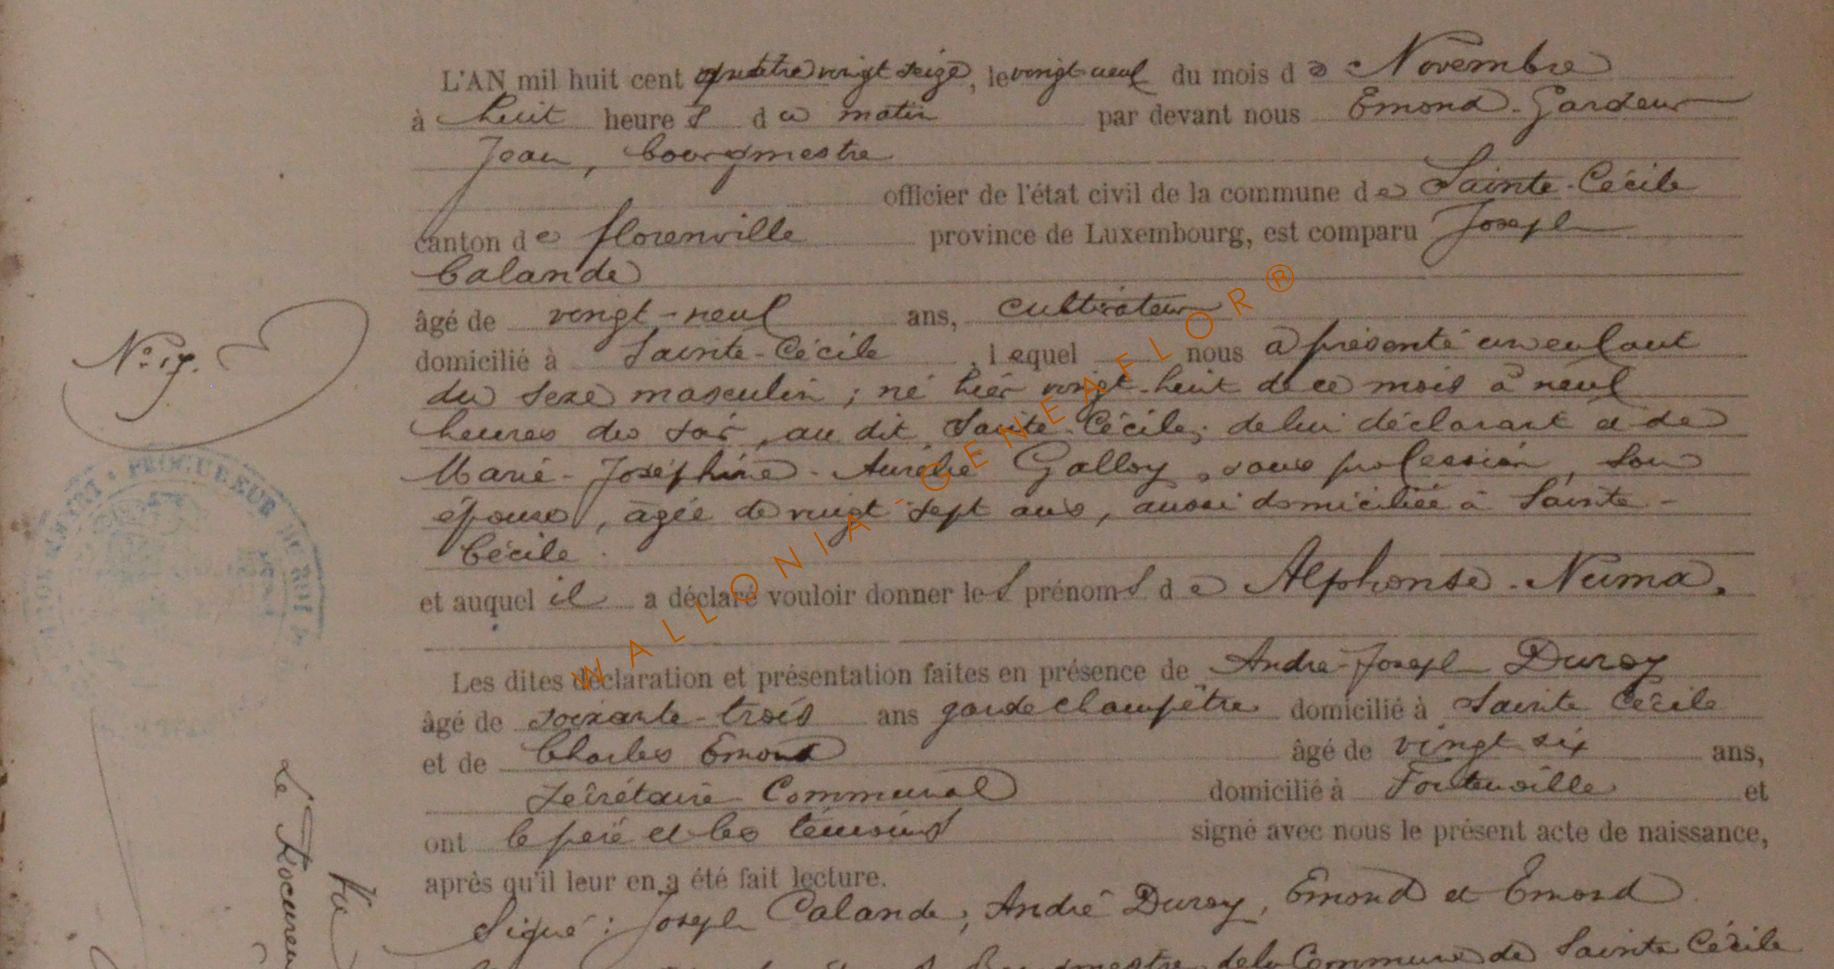 L'AN mil huit cent quatre vingt seize, le vingt-neuf du mois de Novembre
à huit heures du matin par devant nous Emond-Gardeur
Jean, bourgmestre
officier de l'état civil de la commune de Sainte-Cécile
canton de florenville province de Luxembourg, est comparu Joseph
Calande
âgé de vingt-neuf ans, cultivateur
domicilié à Sainte-Cécile, lequel nous a présenté un enfant
du sexe masculin ; né hier vingt-huit de ce mois à neuf
heures du soir, au dit Sainte Cécile, de lui déclarant et de
Marie-Joséphine-Aurélie Galloy, sans profession, son
épouse, agée de vingt sept ans, aussi domiciliée à Sainte-
Cécile.
et auquel il a déclaré vouloir donner les prénoms de Alphonse-Numa.
Les dites déclaration et présentation faites en présence de André-Joseph Duroy
âgé de soixante-trois ans garde champêtre domicilié à Sainte Cécile
et de Charles Emond âgé de vingt six ans,
Secrétaire Communal domicilié à Fontenoille et
ont le père et les témoins signé avec nous le présent acte de naissance,
après qu'il leur en a été fait lecture.
Signé : Joseph Calande, André Duroy, Emond et Emond
de la Commune de Sainte Cécile
No 17.
PROCUREUR DU ROI
Le Procureur
WALLONIA-GENEAFLOR®